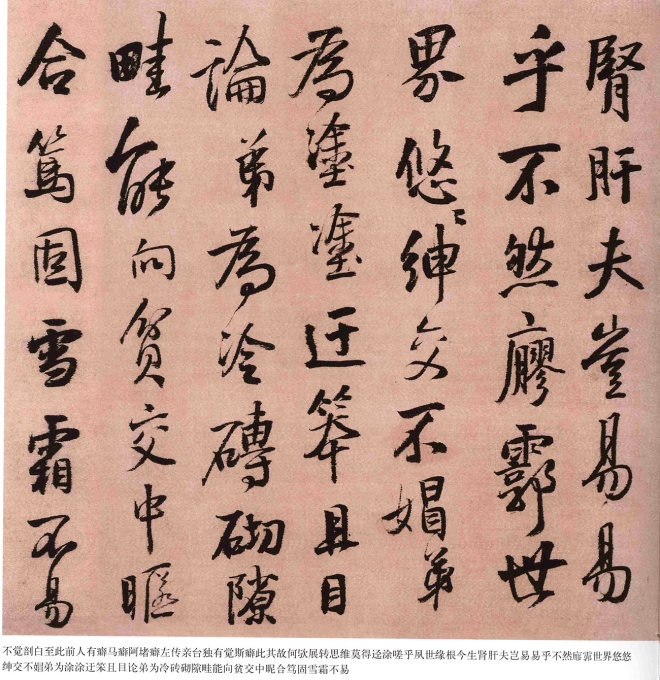 腎肝夫豈易易
乎不然廫霩世
界悠〻紳交不媢弟
為塗塗迂笨且目
論弟為冷磚砌隙
畦能向貧交中暱
合篤固雪霜不易
不觉剖白至此前人有癖马癖阿堵癖左传亲台独有觉斯癖此其故何欤展转思维莫得迳涂嗟乎夙世缘根今生肾肝夫岂易易乎不然廫霩世界悠悠
绅交不媢弟为涂涂迂笨且目论弟为冷砖砌隙畦能向贫交中昵合笃固雪霜不易